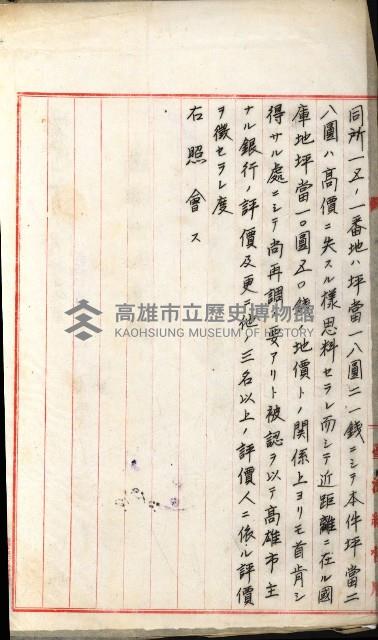 同所一五ノ一番地ハ坪當一八圓二一錢ニシテ本件坪當二
八圓ハ高價ニ失スル樣思料セラレ而シテ近距離ニ在ル國
庫地坪當一〇圓五〇錢ノ地價トノ關係上ヨリモ首肯シ
得サル處ニシテ尚再調ノ要アリト被認ヲ以テ高雄市主
ナル銀行ノ評價及更ニ他ノ三名以上ノ評價人ニ依ル評價
ヲ徵セラレ度
右照會ス
高雄市立歷史博物館
KAOHSIUNG MUSEUM OF HISTORY